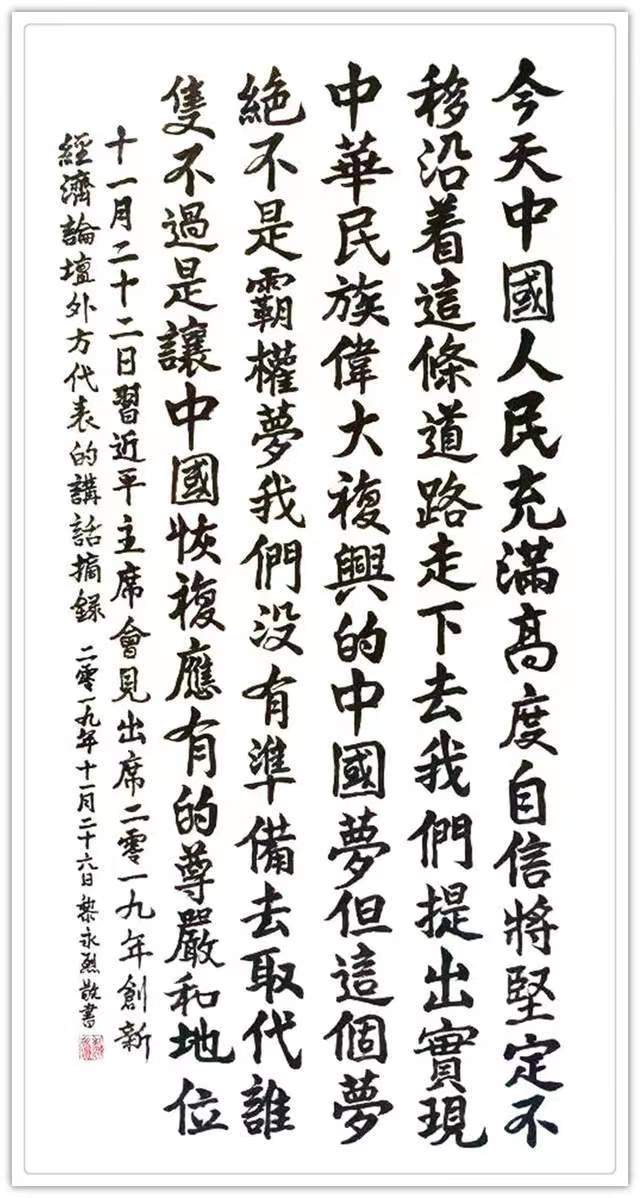 今天中國人民充滿高度自信將堅定不
移沿着這條道路走下去我們提出實現
中華民族偉大複興的中國夢但這個夢
絶不是霸權夢我們没有準備去取代誰
隻不過是讓中國恢複應有的尊嚴和地位
十一月二十二日習近平主席會見出席二零一九年創新
經濟論壇外方代表的講話摘錄 二零一九年十一月二十六日 黎永烈敬書